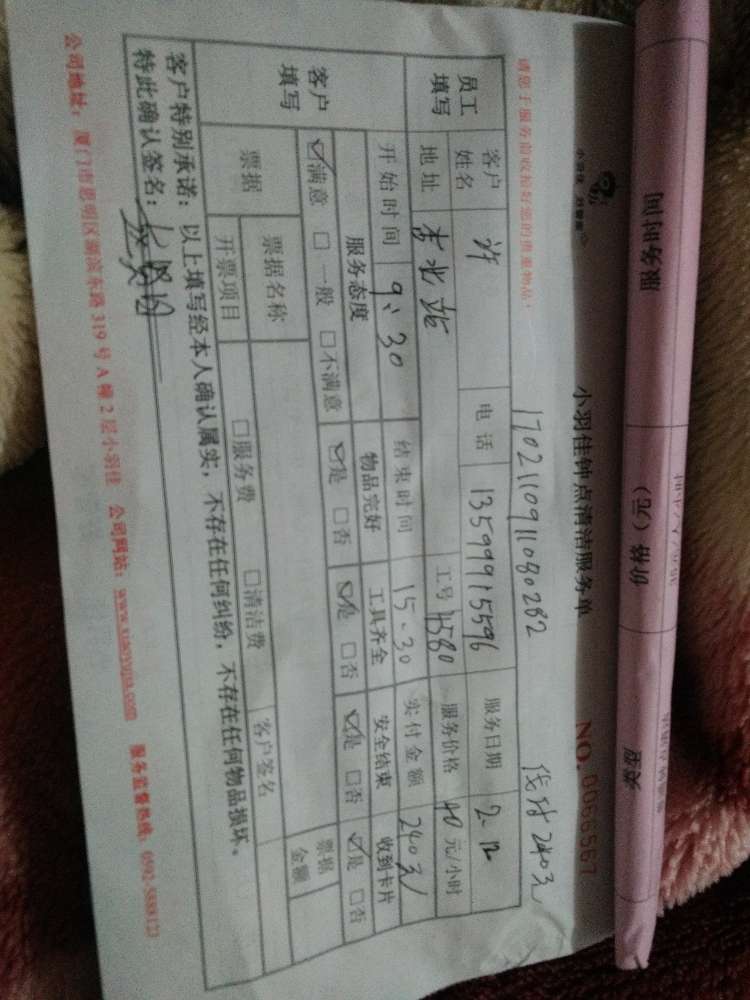 服务时间
价格(元)
小羽佳钟点清洁服务单
NO. 0066567
1702110911080282
240元
请您于服务前收拾好您的贵重物品！
员工填写
客户姓名 许
电话 13599915596
服务日期 2.12
地址
工号 11580
服务价格 40元/小时
客户填写
开始时间 9:30
结束时间 15:30
实付金额 240元
服务态度
物品完好
工具齐全
安全结束
收到卡片
☑满意 □一般 □不满意
☑是 □否
☑是 □否
☑是 □否
☑是 □否
票据
票据名称
客户签名
票据金额
开票项目
□服务费 □清洁费
客户特别承诺：以上填写经本人确认属实，不存在任何纠纷，不存在任何物品损坏。
特此确认签名：
公司地址：厦门市思明区湖滨东路319号A幢2层小羽佳 公司网站：www.xiaoyujia.com 服务监督热线：0592-5888123